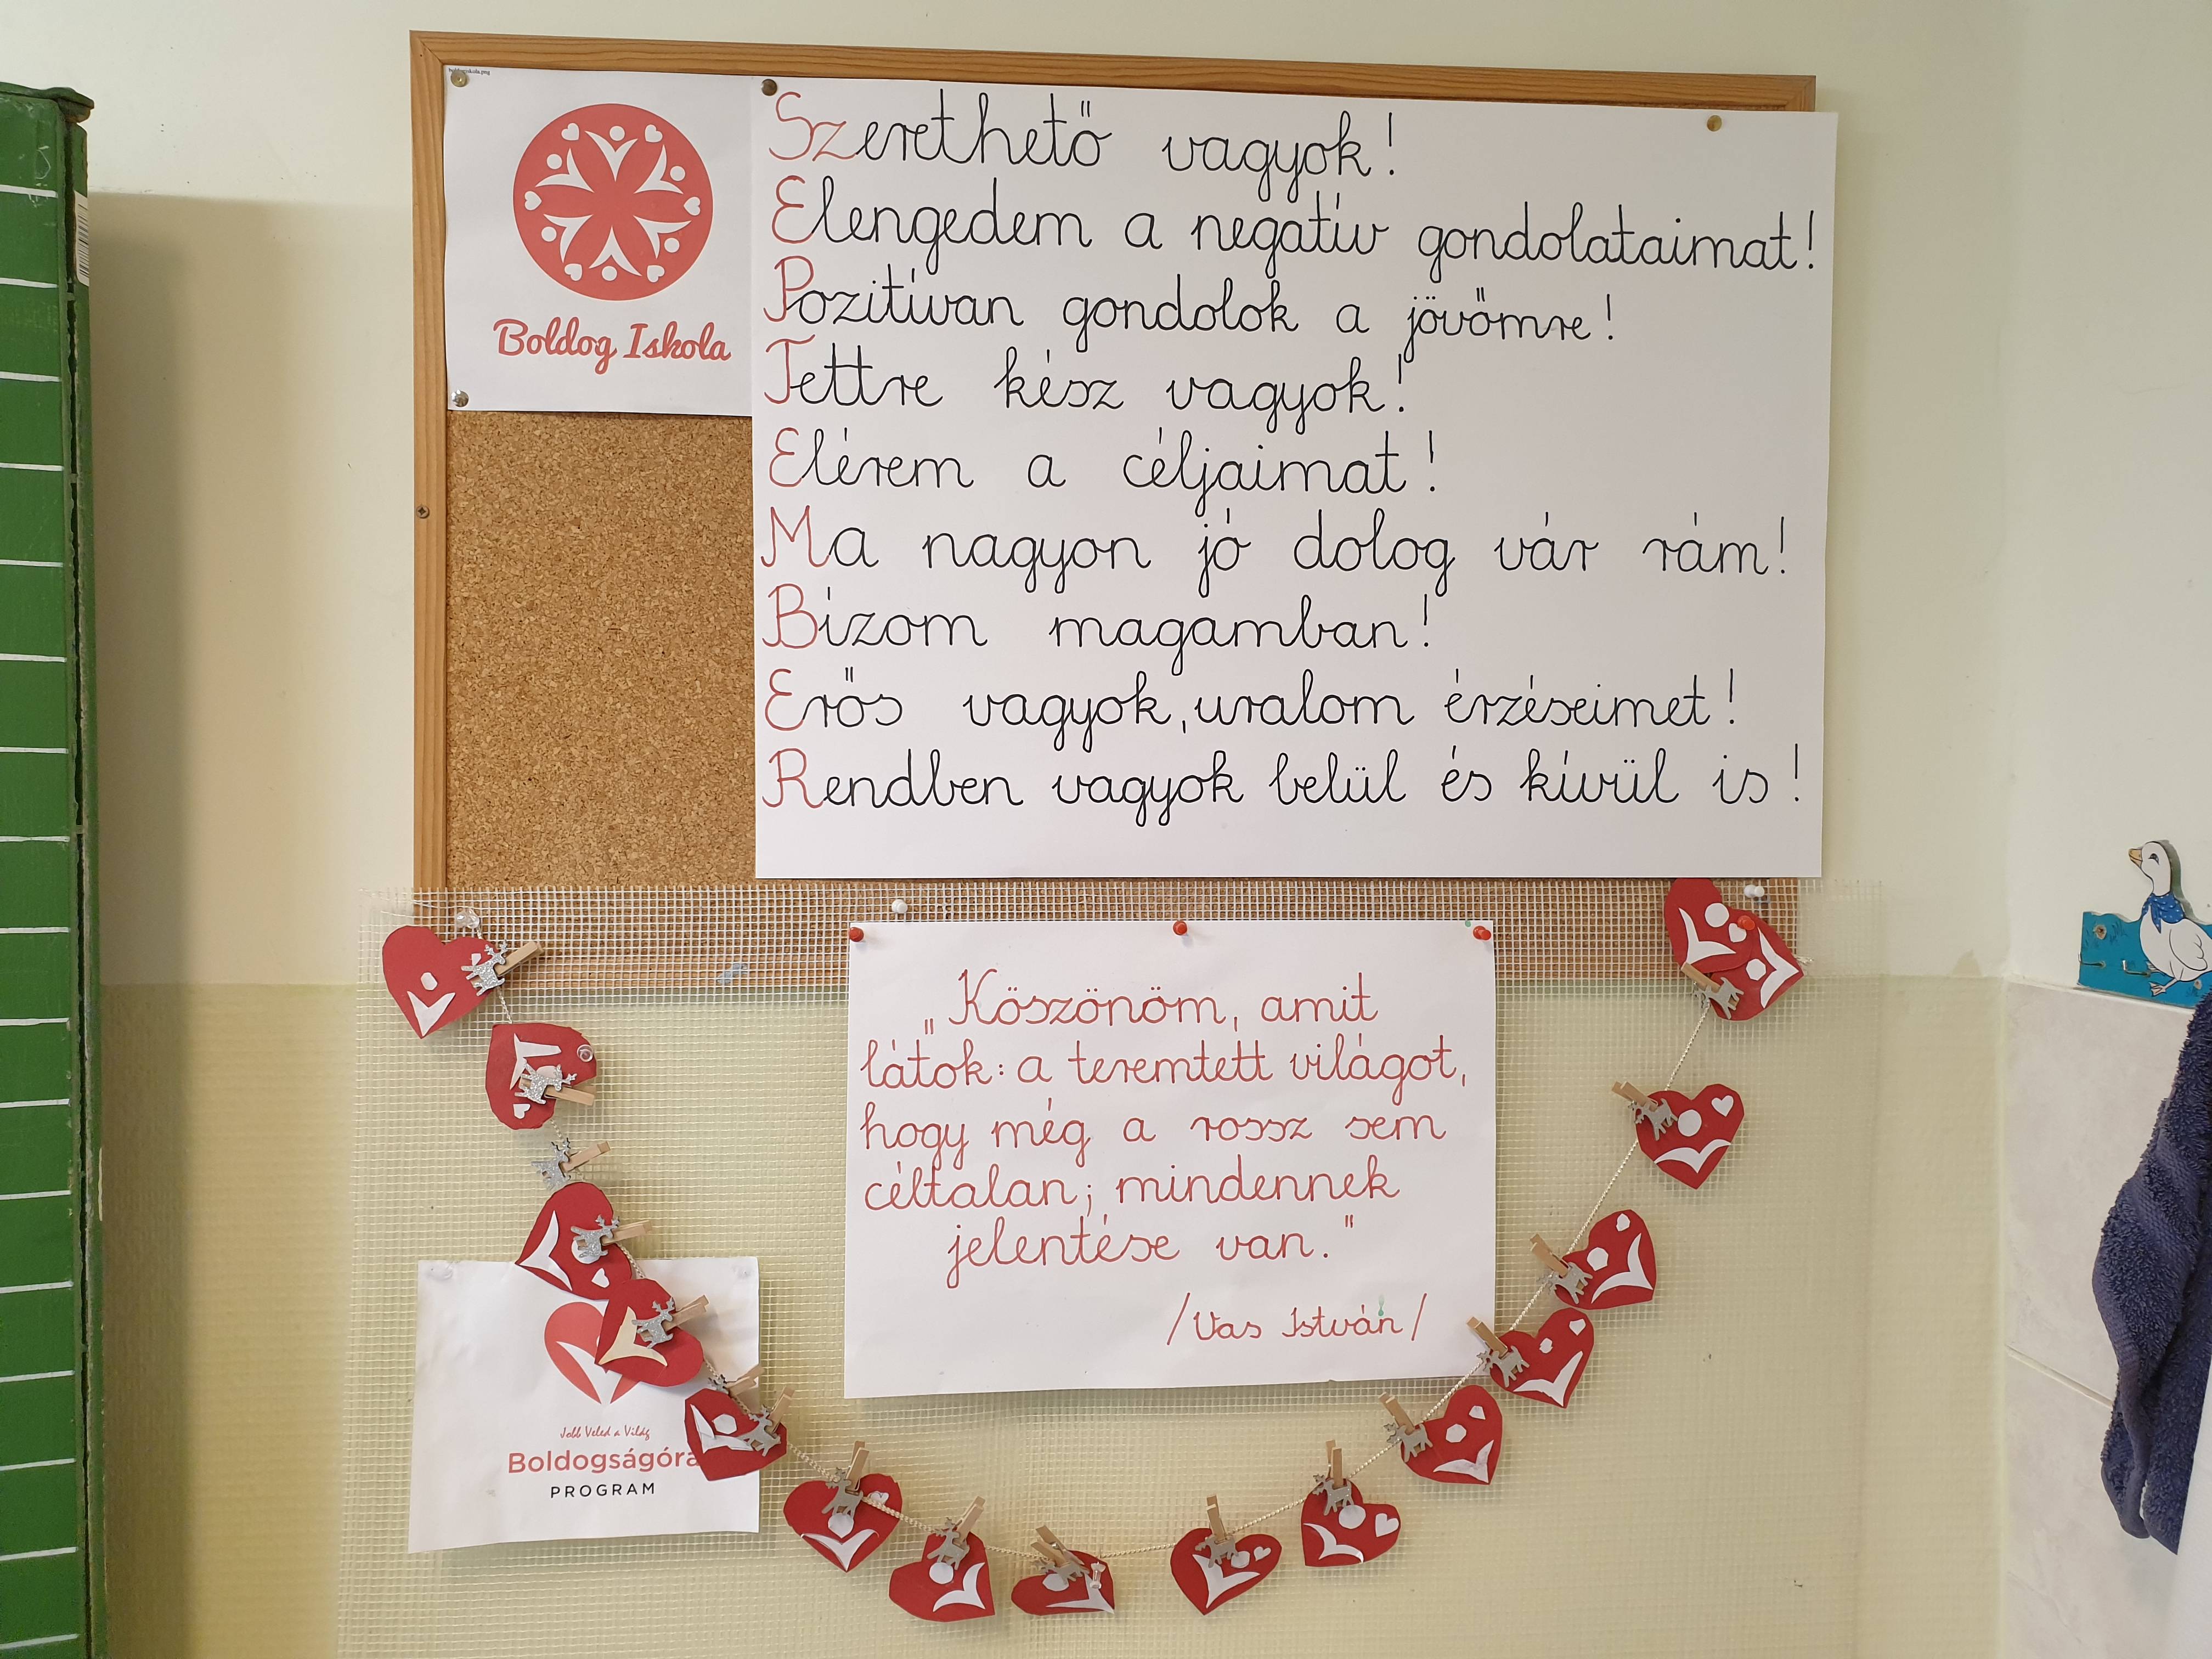 Boldog Iskola
Szerethető vagyok!
Elengedem a negatív gondolataimat!
Pozitívan gondolok a jövőmre!
Tettre kész vagyok!
Elérem a céljaimat!
Ma nagyon jó dolog vár rám!
Bízom magamban!
Erős vagyok, uralom érzéseimet!
Rendben vagyok belül és kívül is!
„Köszönöm, amit
látok: a teremtett világot,
hogy még a rossz sem
céltalan; mindennek
jelentése van."
/Vas István/
Jobb Veled a Világ
Boldogságóra
PROGRAM